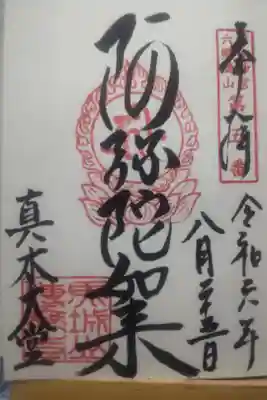 奉拝
令和六年
八月二十五日
阿弥陀如来
真木大堂